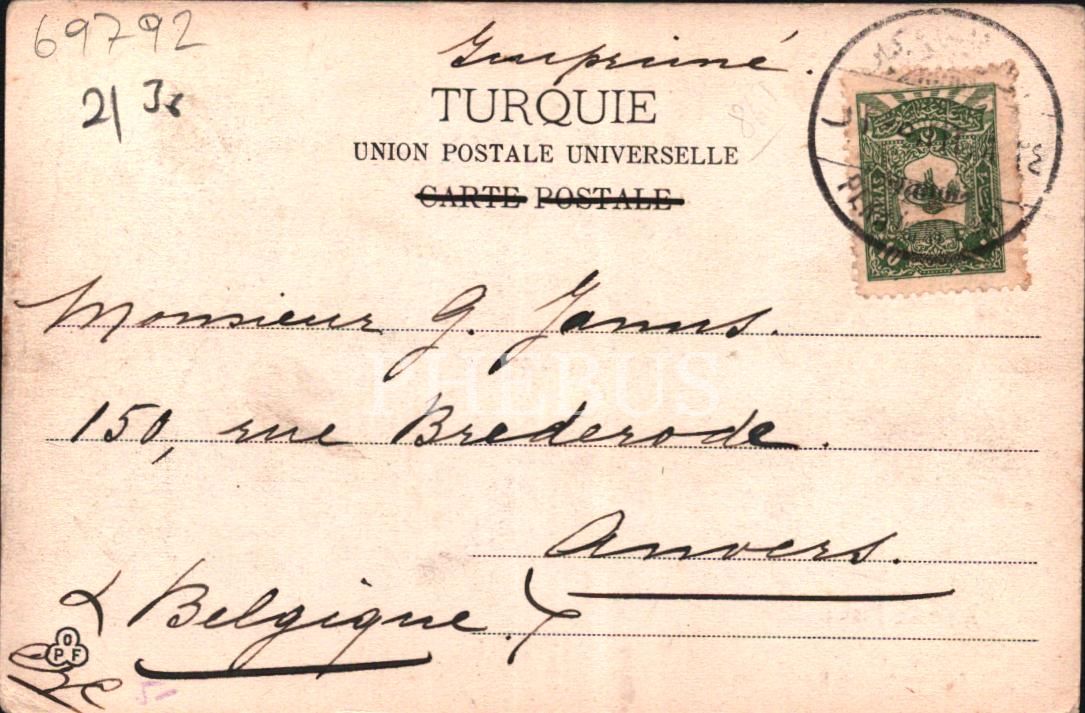 69792
2/ 3x
Imprimé.
TURQUIE
UNION POSTALE UNIVERSELLE
CARTE POSTALE
Monsieur G. Janus.
150, rue Brederode.
Anvers.
Belgique.
PHEBUS
O
P F